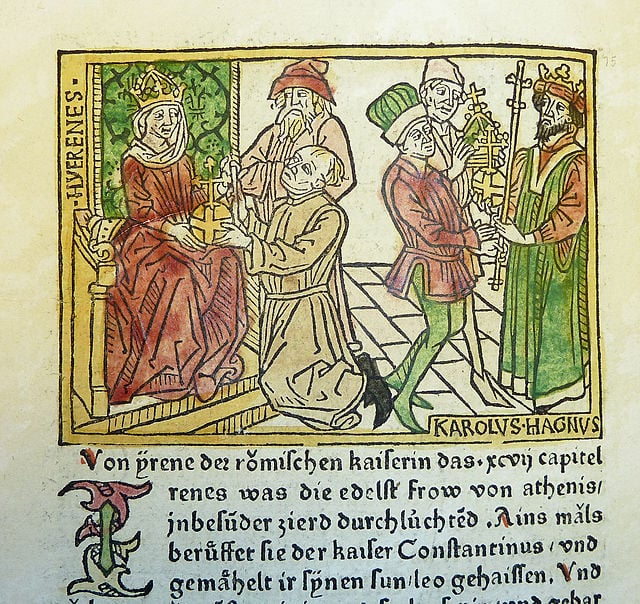 ·HVERENES·
KAROLVS·HAGNVS
Von ÿrene der rŏmischen kaiserin das·xcvij capitel
Irenes was die edelst frow von athenis/
jnbesŭder zierd durchlúchtēd. Ains mǎls
berŭffet sie der kaiser Constantinus/vnd
gemǎhelt ir sÿnen sun/leo gehaissen. Vnd